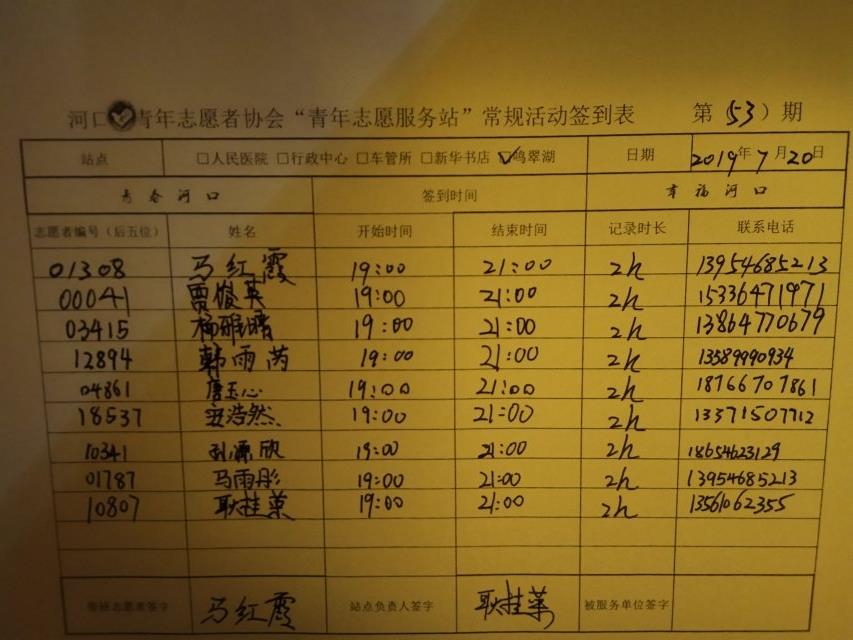 河口青年志愿者协会“青年志愿服务站”常规活动签到表 第（53）期
站点 □人民医院 □行政中心 □车管所 □新华书店 ☑鸣翠湖 日期 2019年7月20日
青春河口 签到时间 幸福河口
志愿者编号（后五位） 姓名 开始时间 结束时间 记录时长 联系电话
01308 马红霞 19:00 21:00 2h 13954685213
00041 贾俊英 19:00 21:00 2h 15336471971
03415 19:00 21:00 2h 13864770679
12894 韩雨芮 19:00 21:00 2h 13589990934
04861 唐玉心 19:00 21:00 2h 18766707861
18537 安浩然 19:00 21:00 2h 13371507712
10341 19:00 21:00 2h 18654623129
01787 马雨彤 19:00 21:00 2h 13954685213
10807 耿桂英 19:00 21:00 2h 13561062355
志愿者签字 马红霞 站点负责人签字 耿桂英 被服务单位签字